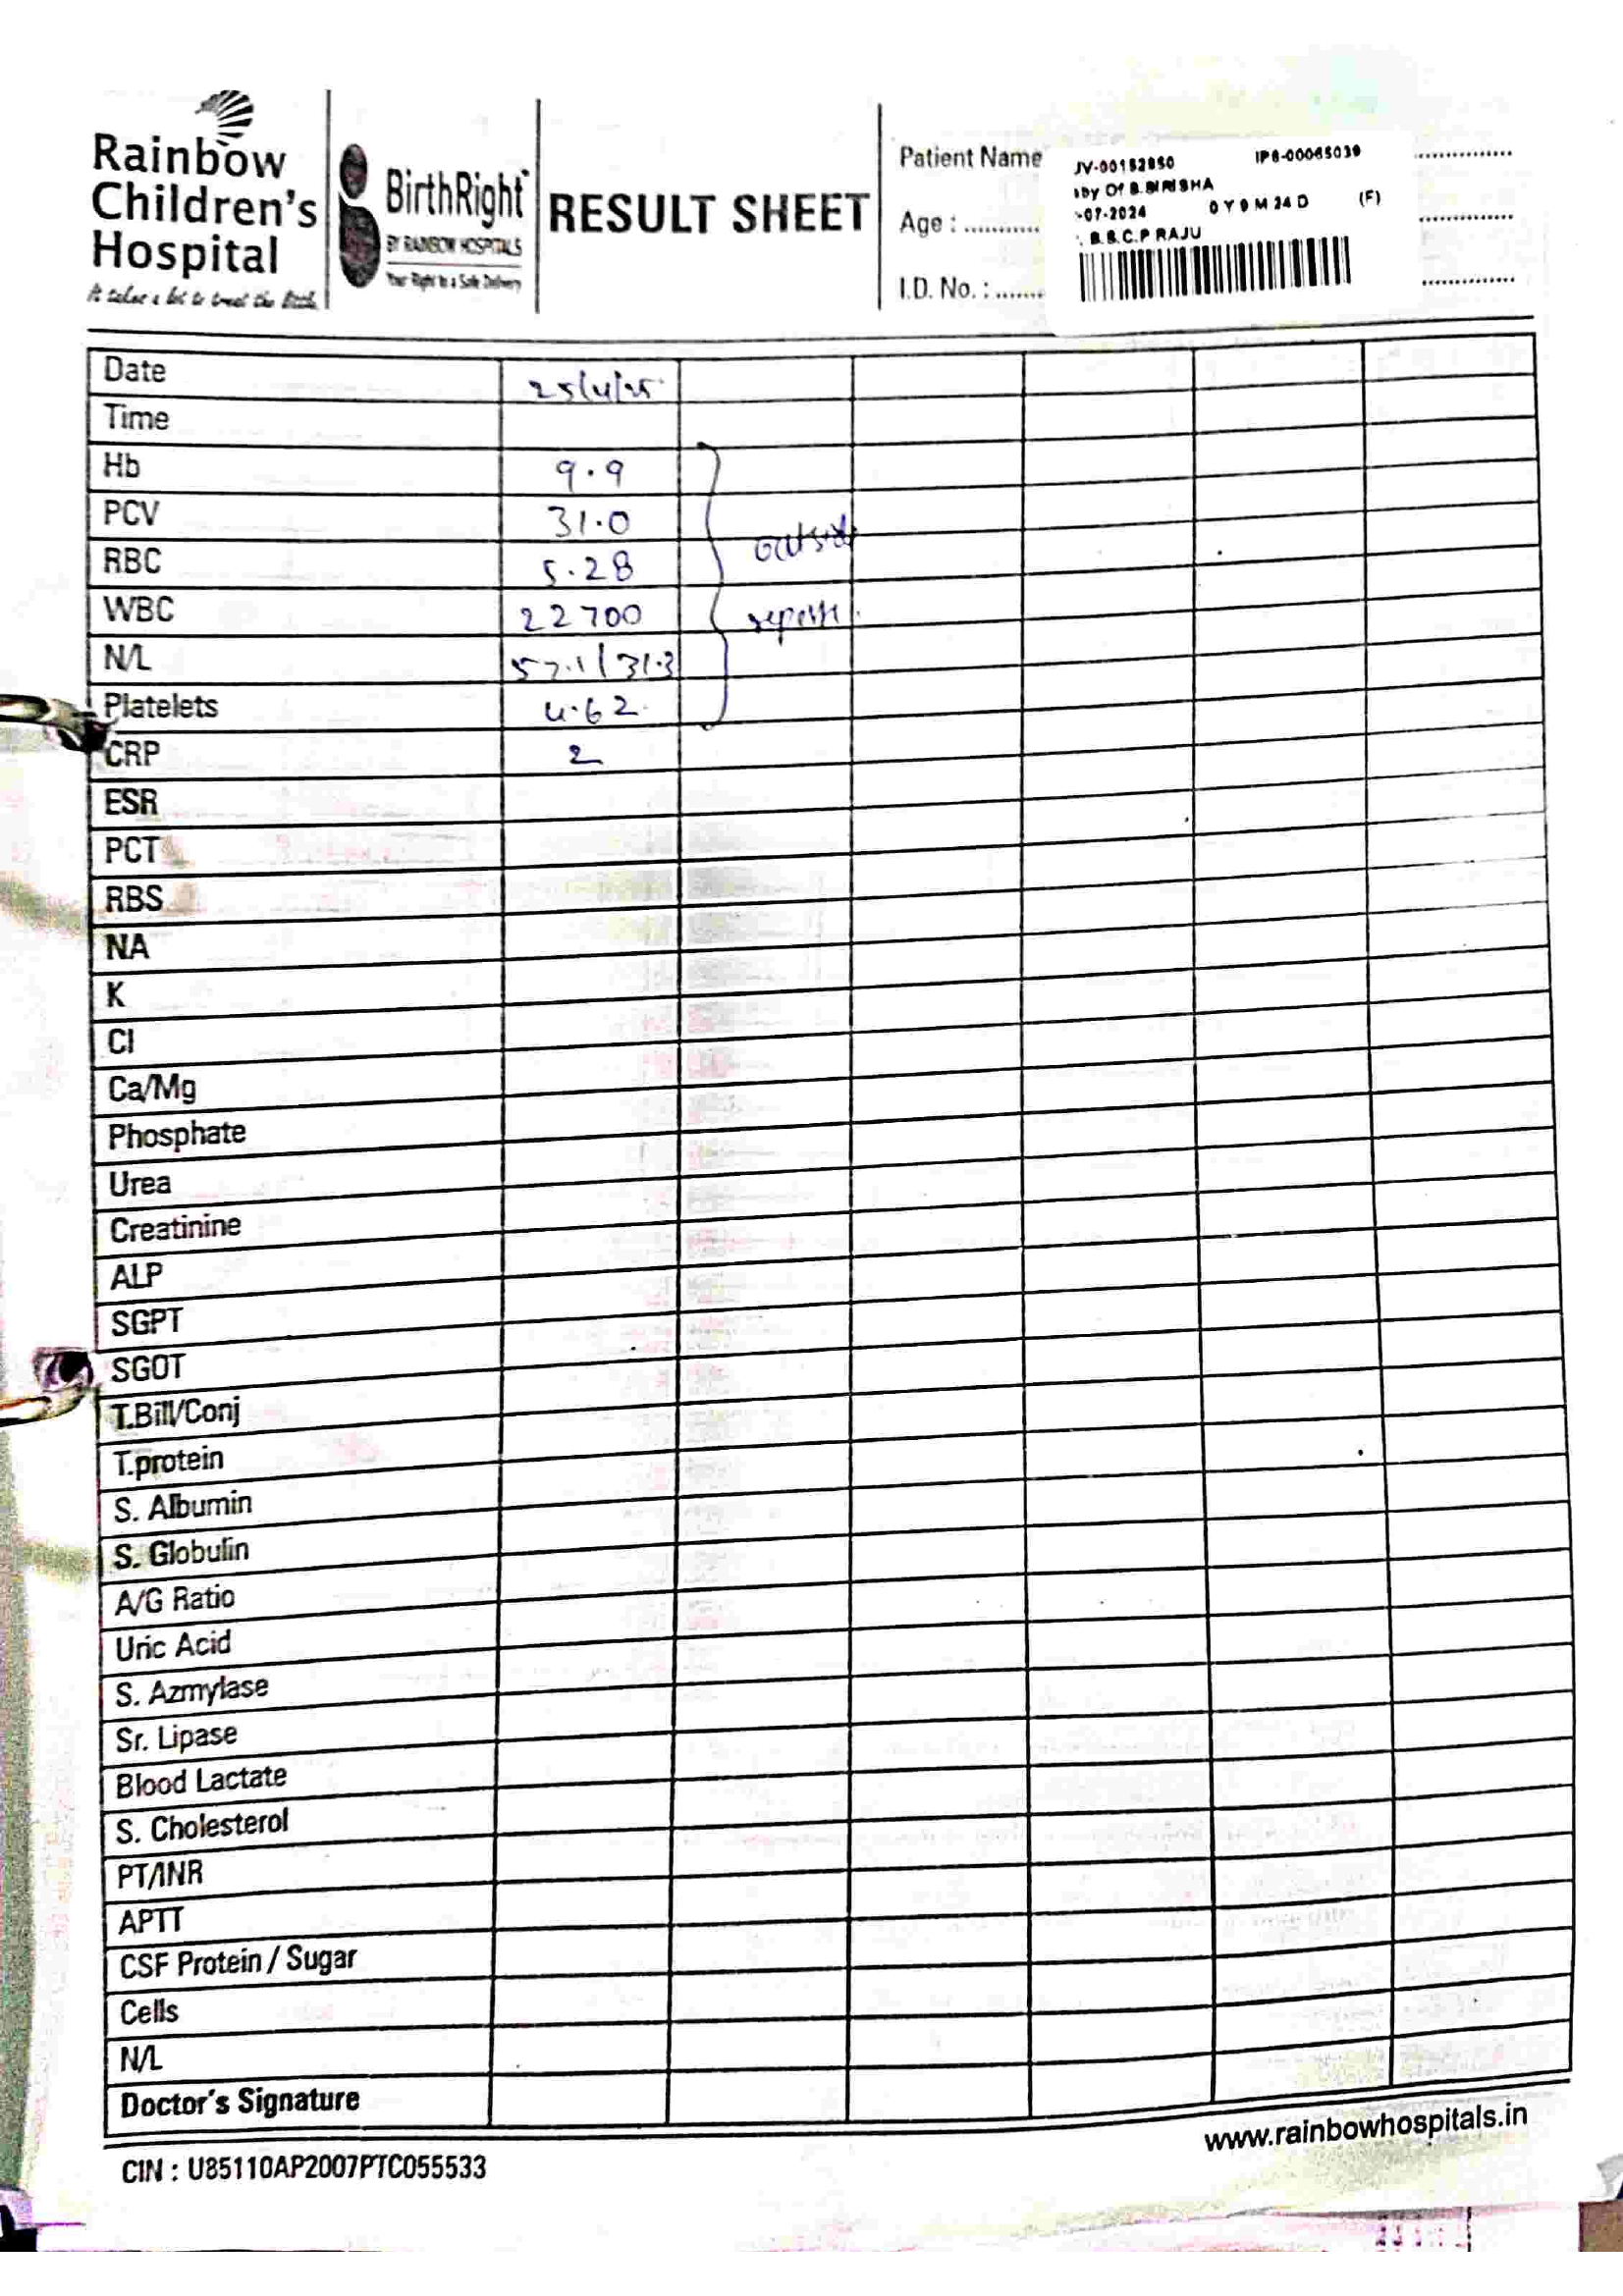 Rainbow
Children's
Hospital
It takes a lot to treat the little.
BirthRight
BY RAINBOW HOSPITALS
Your Right to a Safe Delivery
RESULT SHEET
Patient Name
Age : ...........
I.D. No. : .......
JV-00152950 IP6-00065039
by Of B.SIRISHA
-07-2024 0 Y 9 M 24 D (F)
B.S.C.P RAJU
Date 25/4/25
Time
Hb 9.9
PCV 31.0
RBC 5.28
WBC 22700
N/L 57.1/31.3
Platelets 4.62
outside
CRP 2
ESR
PCT
RBS
NA
K
Cl
Ca/Mg
Phosphate
Urea
Creatinine
ALP
SGPT
SGOT
T.Bill/Conj
T.protein
S. Albumin
S. Globulin
A/G Ratio
Uric Acid
S. Azmylase
Sr. Lipase
Blood Lactate
S. Cholesterol
PT/INR
APTT
CSF Protein / Sugar
Cells
N/L
Doctor's Signature
www.rainbowhospitals.in
CIN : U85110AP2007PTC055533